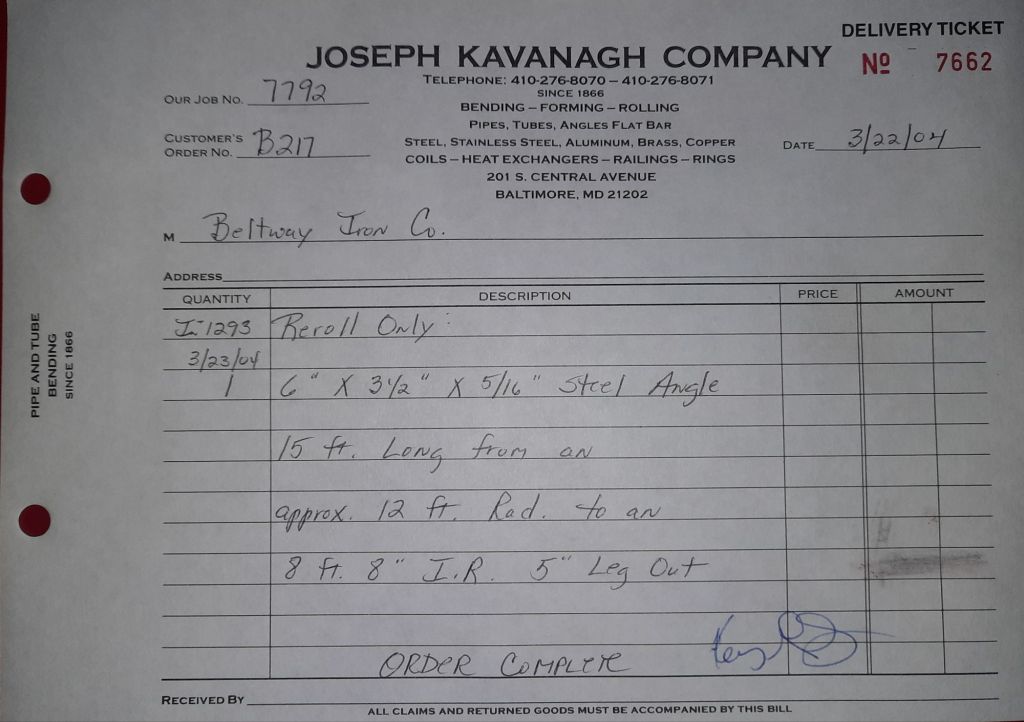 DELIVERY TICKET
JOSEPH KAVANAGH COMPANY
Nº 7662
TELEPHONE: 410-276-8070 – 410-276-8071
SINCE 1866
OUR JOB NO. 7792
BENDING – FORMING – ROLLING
PIPES, TUBES, ANGLES FLAT BAR
CUSTOMER'S ORDER NO. B217
STEEL, STAINLESS STEEL, ALUMINUM, BRASS, COPPER
DATE 3/22/04
COILS – HEAT EXCHANGERS – RAILINGS – RINGS
201 S. CENTRAL AVENUE
BALTIMORE, MD 21202
M Beltway Iron Co.
ADDRESS
QUANTITY DESCRIPTION PRICE AMOUNT
I-1293 Reroll Only:
3/23/04
1 6" X 3 1/2" X 5/16" Steel Angle
15 ft. Long from an
approx. 12 ft. Rad. to an
8 ft. 8" I.R. 5" Leg Out
ORDER COMPLETE
RECEIVED BY
ALL CLAIMS AND RETURNED GOODS MUST BE ACCOMPANIED BY THIS BILL
PIPE AND TUBE
BENDING
SINCE 1866